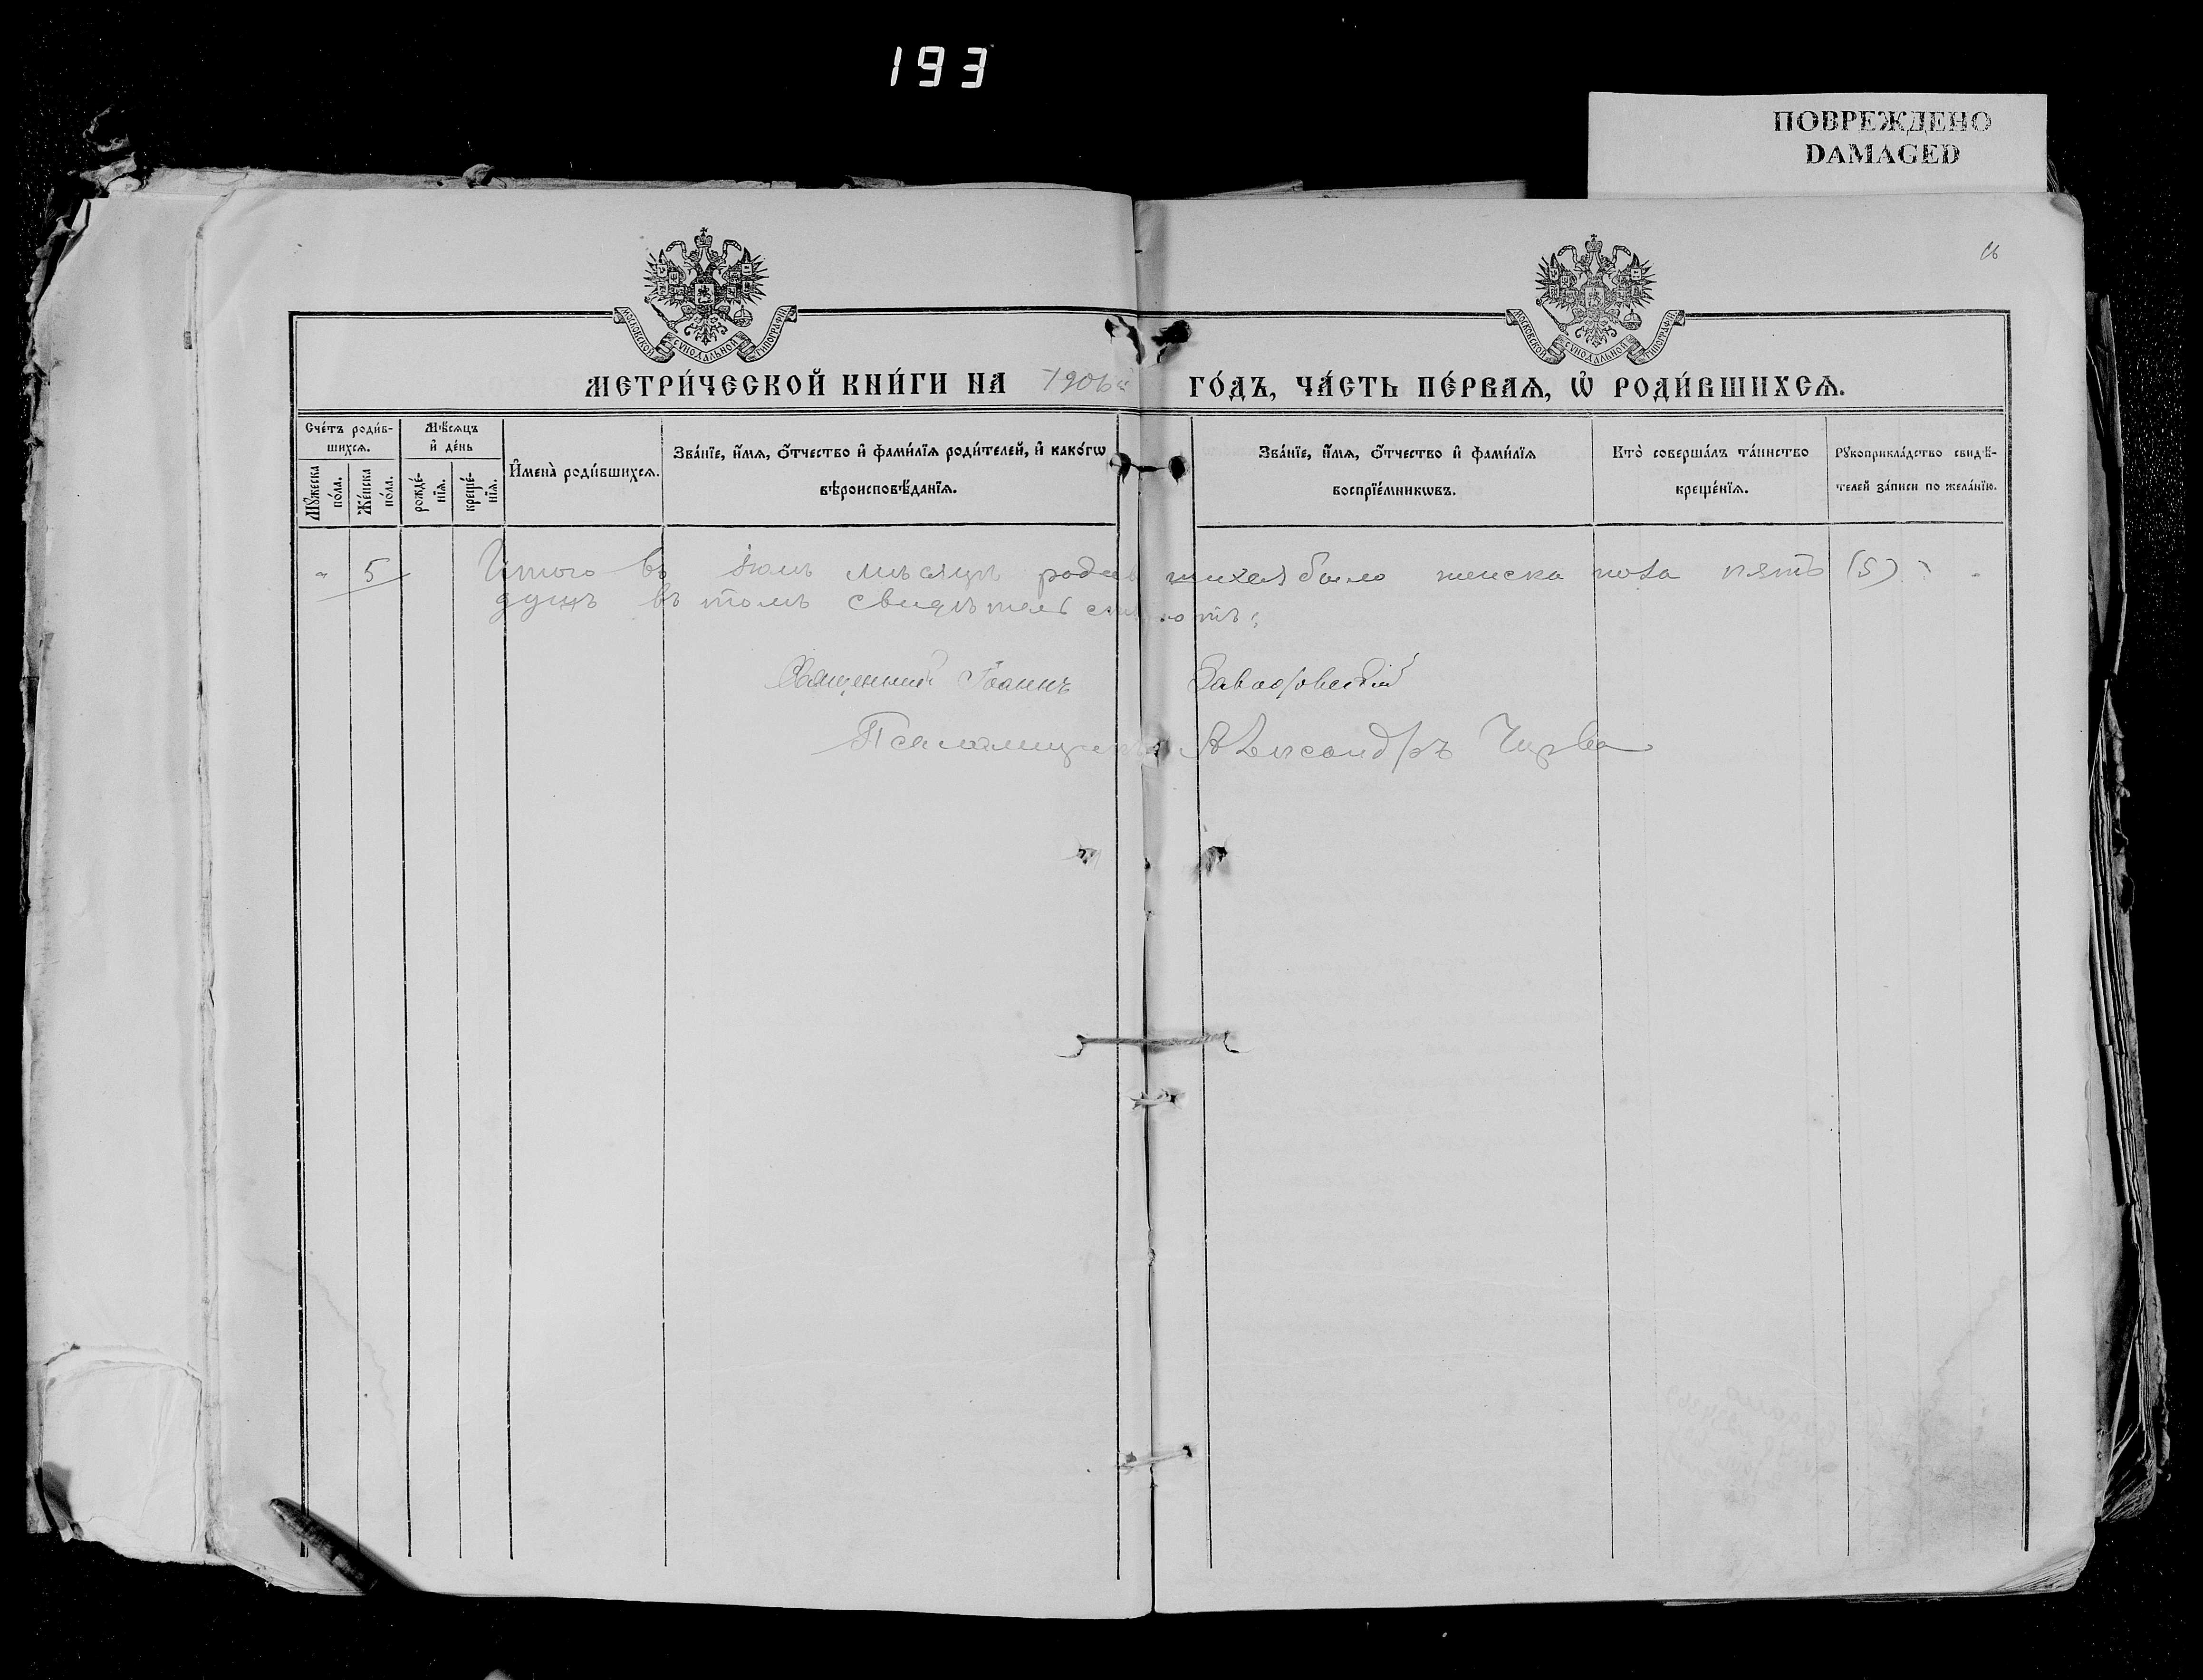 193
ПОВРЕЖДЕНО
DAMAGED
МОСКОВСКОЙ СѴНОДАЛЬНОЙ ТИПОГРАФІИ
МОСКОВСКОЙ СѴНОДАЛЬНОЙ ТИПОГРАФІИ
МЕТРИ́ЧЕСКОЙ КНИ́ГИ НА 1906й ГО́ДЪ, ЧА́СТЬ ПЕ́РВАѦ, Ѡ҆ РОДИ́ВШИХСѦ.
Сче́тъ роди́в-
шихсѧ.
Мꙋ́жеска по́ла.
Же́нска по́ла.
Мѣ́сѧцъ и҆ де́нь
рожде́-нїѧ.
креще́-нїѧ.
И҆мена̀ роди́вшихсѧ.
Зва́нїе, и҆́мѧ, ѻ҆́тчество и҆ фами́лїѧ роди́телей, и҆ како́гѡ
вѣроисповѣ́данїѧ.
Зва́нїе, и҆́мѧ, ѻ҆́тчество и҆ фами́лїѧ
воспрїе́мникѡвъ.
Кто̀ соверша́лъ та́инство
креще́нїѧ.
Рꙋкоприкла́дство свидѣ́-
телей за́писи по жела́нїю.
" 5 Итого въ мѣсяцѣ родившихся было женска пола пять (5)
душъ въ томъ свидѣтельствуютъ:
Священникъ Іоаннъ Завадовскій
Псаломщикъ Александръ Чирва